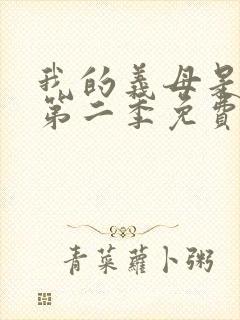 我的義母是
第二季免費
青菜蘿卜粥